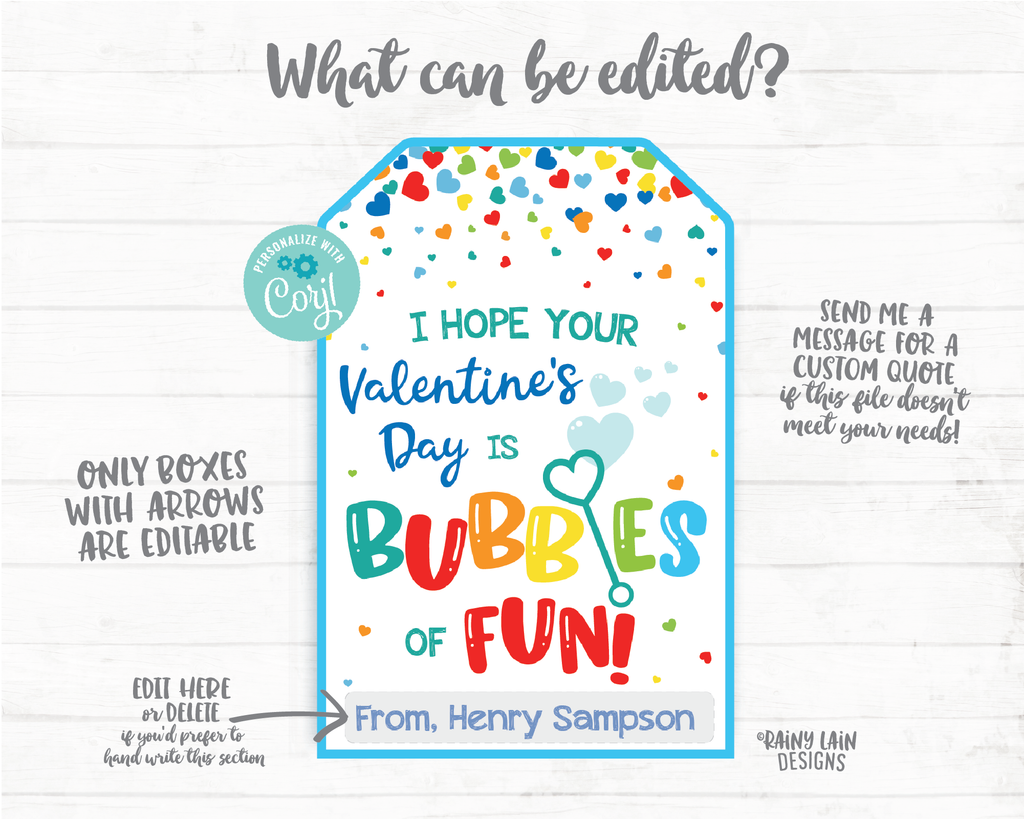 What can be edited?
PERSONALIZE WITH
Corjl
I HOPE YOUR
Valentine's
Day IS
BUBBLES
OF FUN!
From, Henry Sampson
ONLY BOXES
WITH ARROWS
ARE EDITABLE
SEND ME A
MESSAGE FOR A
CUSTOM QUOTE
if this file doesn't
meet your needs!
EDIT HERE
or DELETE
if you'd prefer to
hand write this section
©RAINY LAIN
DESIGNS